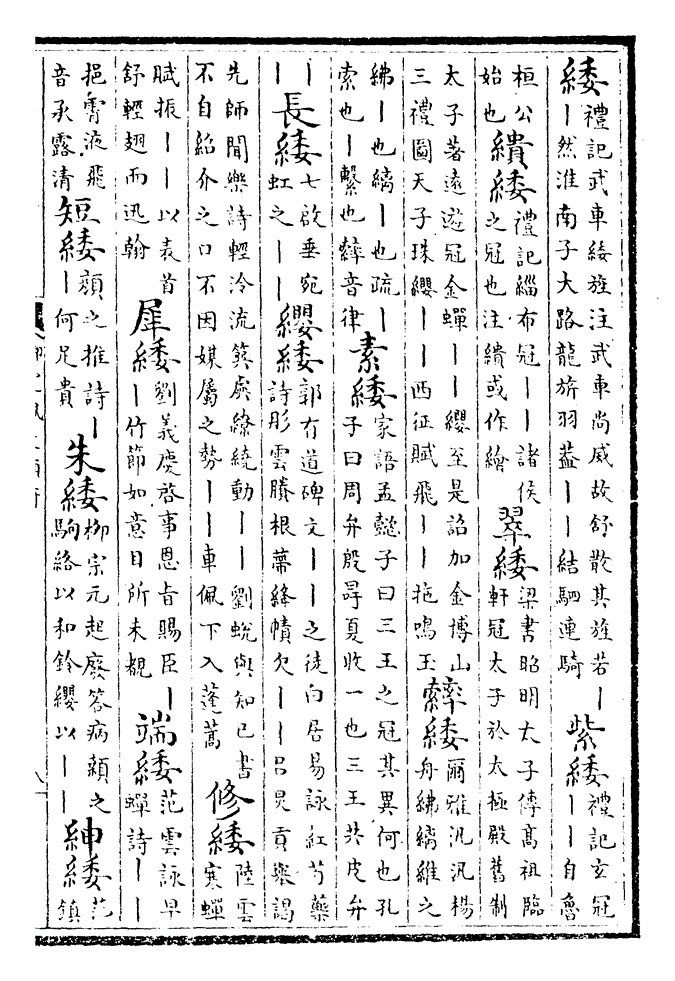 緌 禮記武車綏旌注武車尚威故舒散其旌若丨丨然淮南子大路龍旂羽蓋丨丨結駟連騎 紫緌 禮記玄冠丨丨自魯
桓公始也 繢緌 禮記緇布冠丨丨諸侯之冠也注繢或作繪 翠緌 梁書昭明太子傳高祖臨軒冠太子於太極殿舊制
太子著遠遊冠金蟬丨丨纓至是詔加金博山三禮圖天子珠纓丨丨西征賦飛丨丨拖鳴玉 繂緌 爾雅汎汎楊舟紼縭維之
紼丨也縭丨也疏丨索也丨繫也繂音律 素緌 家語孟懿子曰三王之冠其異何也孔子曰周弁殷冔夏收一也三王共皮弁
丨丨 長緌 七啟垂宛虹之丨丨 纓緌 郭有道碑文丨丨之徒白居易詠紅芍藥詩彤雲賸根蔕絳幘欠丨丨呂炅貢舉謁
先師聞樂詩輕泠流簨虡繚繞動丨丨劉蛻與知己書不自紹介之口不因媒屬之勢丨丨車佩下入蓬蒿 修緌 陸雲寒蟬
賦振丨丨以表首舒輕翅而迅翰 犀緌 劉義慶啓事恩旨賜臣丨丨竹節如意目所未覩 端緌 范雲詠早蟬詩丨丨
挹霄液飛音承露清 短緌 顏之推詩丨丨何足貴 朱緌 柳宗元起廢答病顙之駒絡以和鈴纓以丨丨 紳緌 范鎮